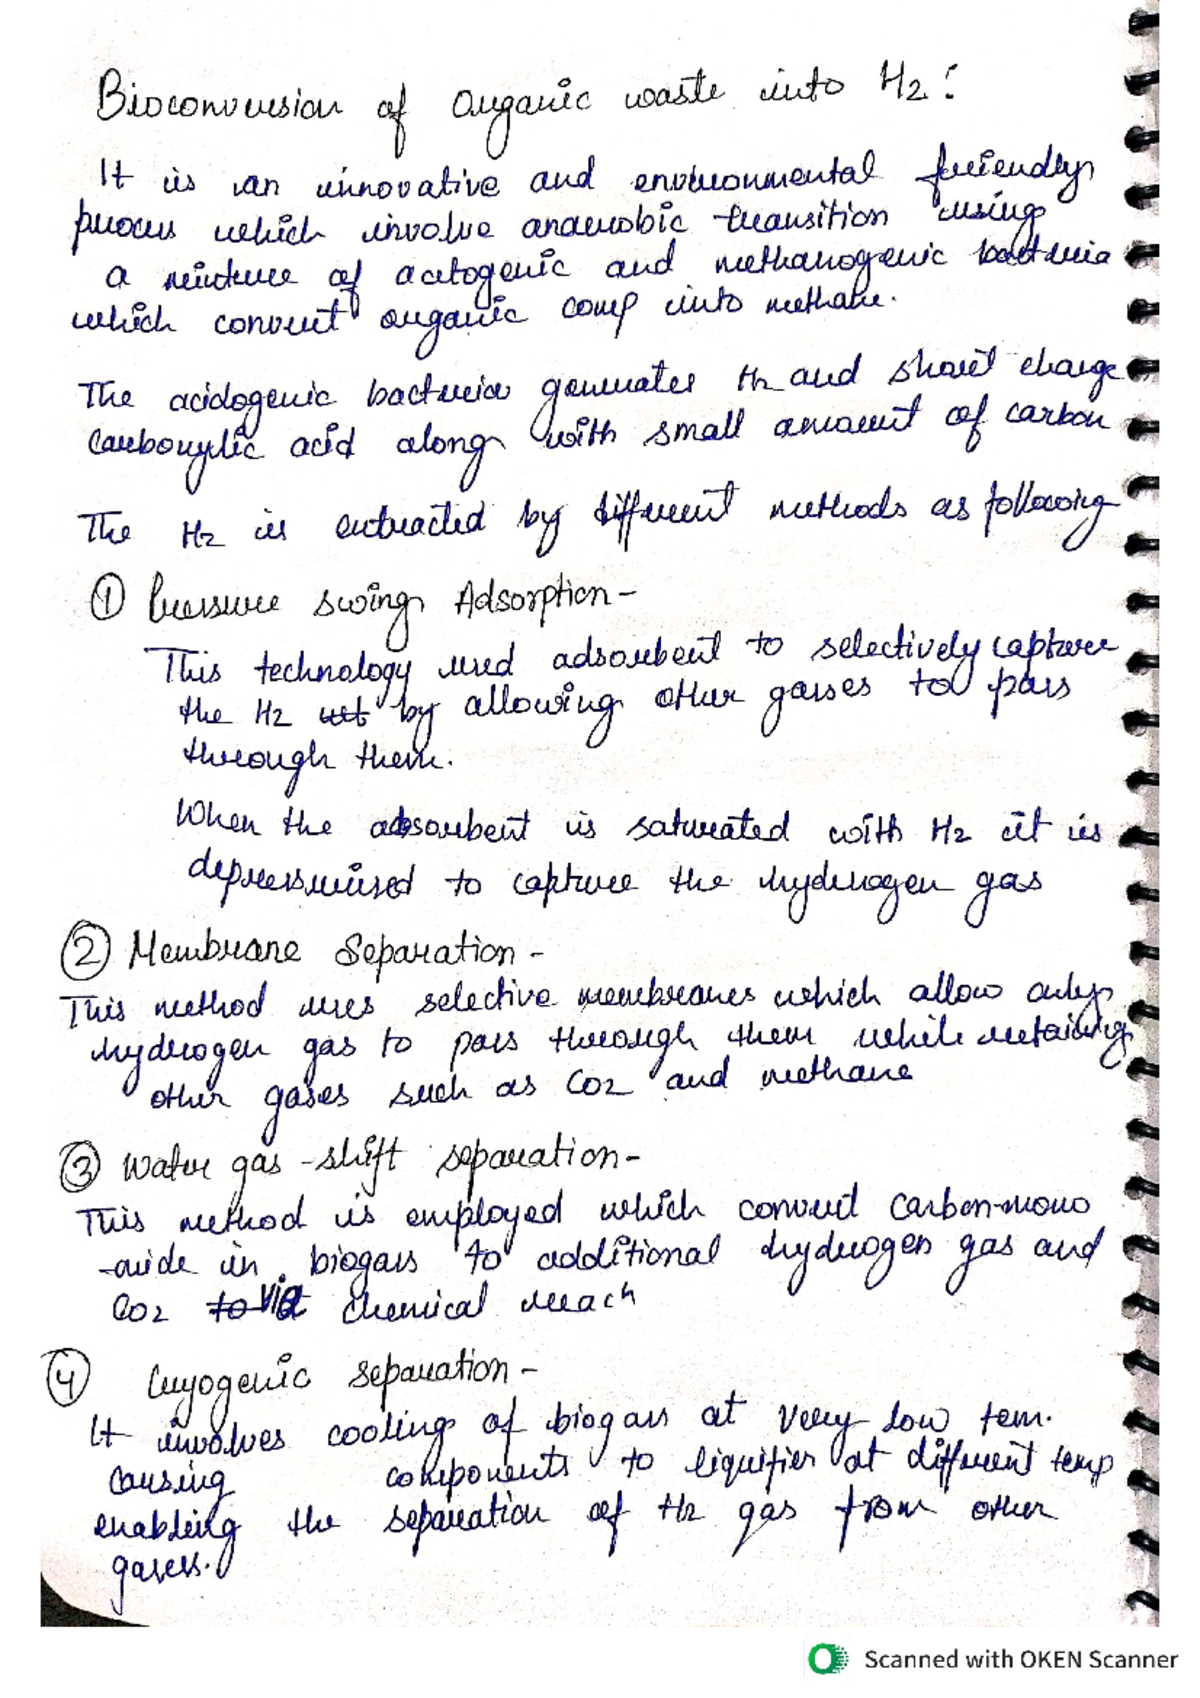 Bioconversion of organic waste into H2:
It is an innovative and environmental friendly
process which involve anaerobic transition using
a mixture of acetogenic and methanogenic bacteria
which convert organic comp into methane.
The acidogenic bacteria generates H2 and short charge
carboxylic acid along with small amount of carbon
The H2 is extracted by different methods as following
① Pressure swing Adsorption-
This technology used adsorbent to selectively capture
the H2 by allowing other gasses to pass
through them.
When the adsorbent is saturated with H2 it is
depressurised to capture the hydrogen gas
② Membrane Separation-
This method uses selective membranes which allow only
hydrogen gas to pass through them while retaining
other gases such as CO2 and methane
③ Water gas-shift separation-
This method is employed which convert Carbon-mono
-oxide in biogas to additional hydrogen gas and
CO2 to via chemical reach
④ Cryogenic separation-
It involves cooling of biogas at very low tem.
causing components to liquifier at different temp
enabling the separation of H2 gas from other
gases.
Scanned with OKEN Scanner